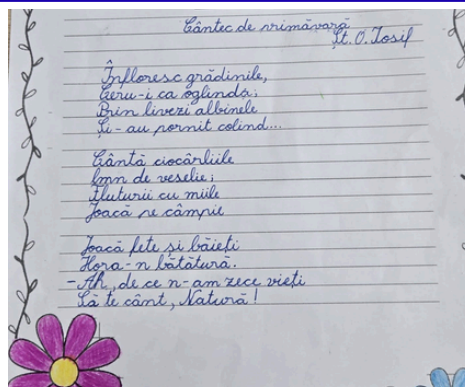 Cântec de primăvară
Șt. O. Iosif
Înfloresc grădinile,
Ceru-i ca oglinda;
Prin livezi albinele
Și-au pornit colind...
Cântă ciocârliile
Imn de veselie;
Fluturii cu miile
Joacă pe câmpie
Joacă fete și băieți
Hora-n bătătură.
-Ah, de ce n-am zece vieți
Să te cânt, Natură!